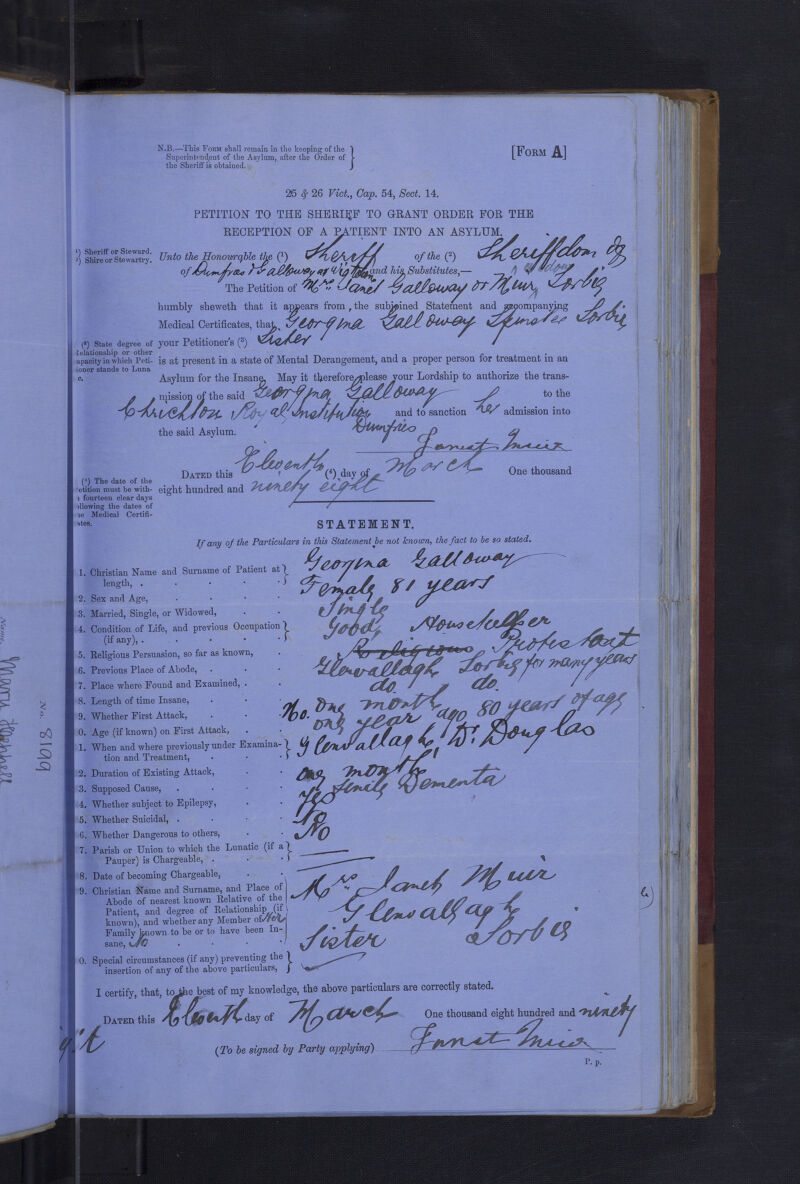 N.B.—This Form shall remain in the keeping of the
Superintendent of the Asylum, after the Order of
the Sheriff is obtained.
[Form A]
25 & 26 Vict., Cap. 54, Sect. 14.
PETITION TO THE SHERIFF TO GRANT ORDER FOR THE
RECEPTION OF A PATIENT INTO AN ASYLUM.
¹) Sheriff or Steward.
²) Shire or Stewartry.
Unto the Honourable the (¹) Sheriff of the (²) Sheriffdom of
of Dumfries & Galloway at Wigtown and his Substitutes,—
The Petition of Mrs. Janet Galloway or Muir, Sorbie
humbly sheweth that it appears from the subjoined Statement and accompanying
Medical Certificates, that Georgina Galloway Spinster Sorbie
(³) State degree of
Relationship or other
capacity in which Peti-
ioner stands to Luna
c.
your Petitioner's (³) Sister
is at present in a state of Mental Derangement, and a proper person for treatment in an
Asylum for the Insane. May it therefore please your Lordship to authorize the trans-
mission of the said Georgina Galloway to the
Chrichton Royal Institution Dumfries and to sanction her admission into
the said Asylum.
Janet Muir
Dated this Eleventh (⁴) day of March One thousand
eight hundred and ninety eight
(⁴) The date of the
etition must be with-
n fourteen clear days
ollowing the dates of
he Medical Certifi-
ates.
STATEMENT.
If any of the Particulars in this Statement be not known, the fact to be so stated.
1. Christian Name and Surname of Patient at length, . Georgina Galloway
2. Sex and Age, Female 81 years
3. Married, Single, or Widowed, Single
4. Condition of Life, and previous Occupation (if any), . Good, Housekeeper
5. Religious Persuasion, so far as known, Religious Protestant
6. Previous Place of Abode, Glenvallagh Sorbie for many years
7. Place where Found and Examined, do. do.
8. Length of time Insane, One month
9. Whether First Attack, No. one year ago 80 years of age
0. Age (if known) on First Attack,
1. When and where previously under Examina-tion and Treatment, Glenvallagh, Dr. Douglas
2. Duration of Existing Attack, one month
3. Supposed Cause, Senile Dementa
4. Whether subject to Epilepsy, yes
5. Whether Suicidal, No
6. Whether Dangerous to others, No
7. Parish or Union to which the Lunatic (if a Pauper) is Chargeable,
8. Date of becoming Chargeable,
9. Christian Name and Surname, and Place of
Abode of nearest known Relative of the
Patient, and degree of Relationship (if
known), and whether any Member of Her
Family known to be or to have been In-
sane, No
Mrs. Janet Muir
Glenvallagh
Sister Sorbie
0. Special circumstances (if any) preventing the
insertion of any of the above particulars,
I certify, that, to the best of my knowledge, the above particulars are correctly stated.
Dated this Eleventh day of March One thousand eight hundred and ninety
(To be signed by Party applying) Janet Muir
P. p.
No. 8199